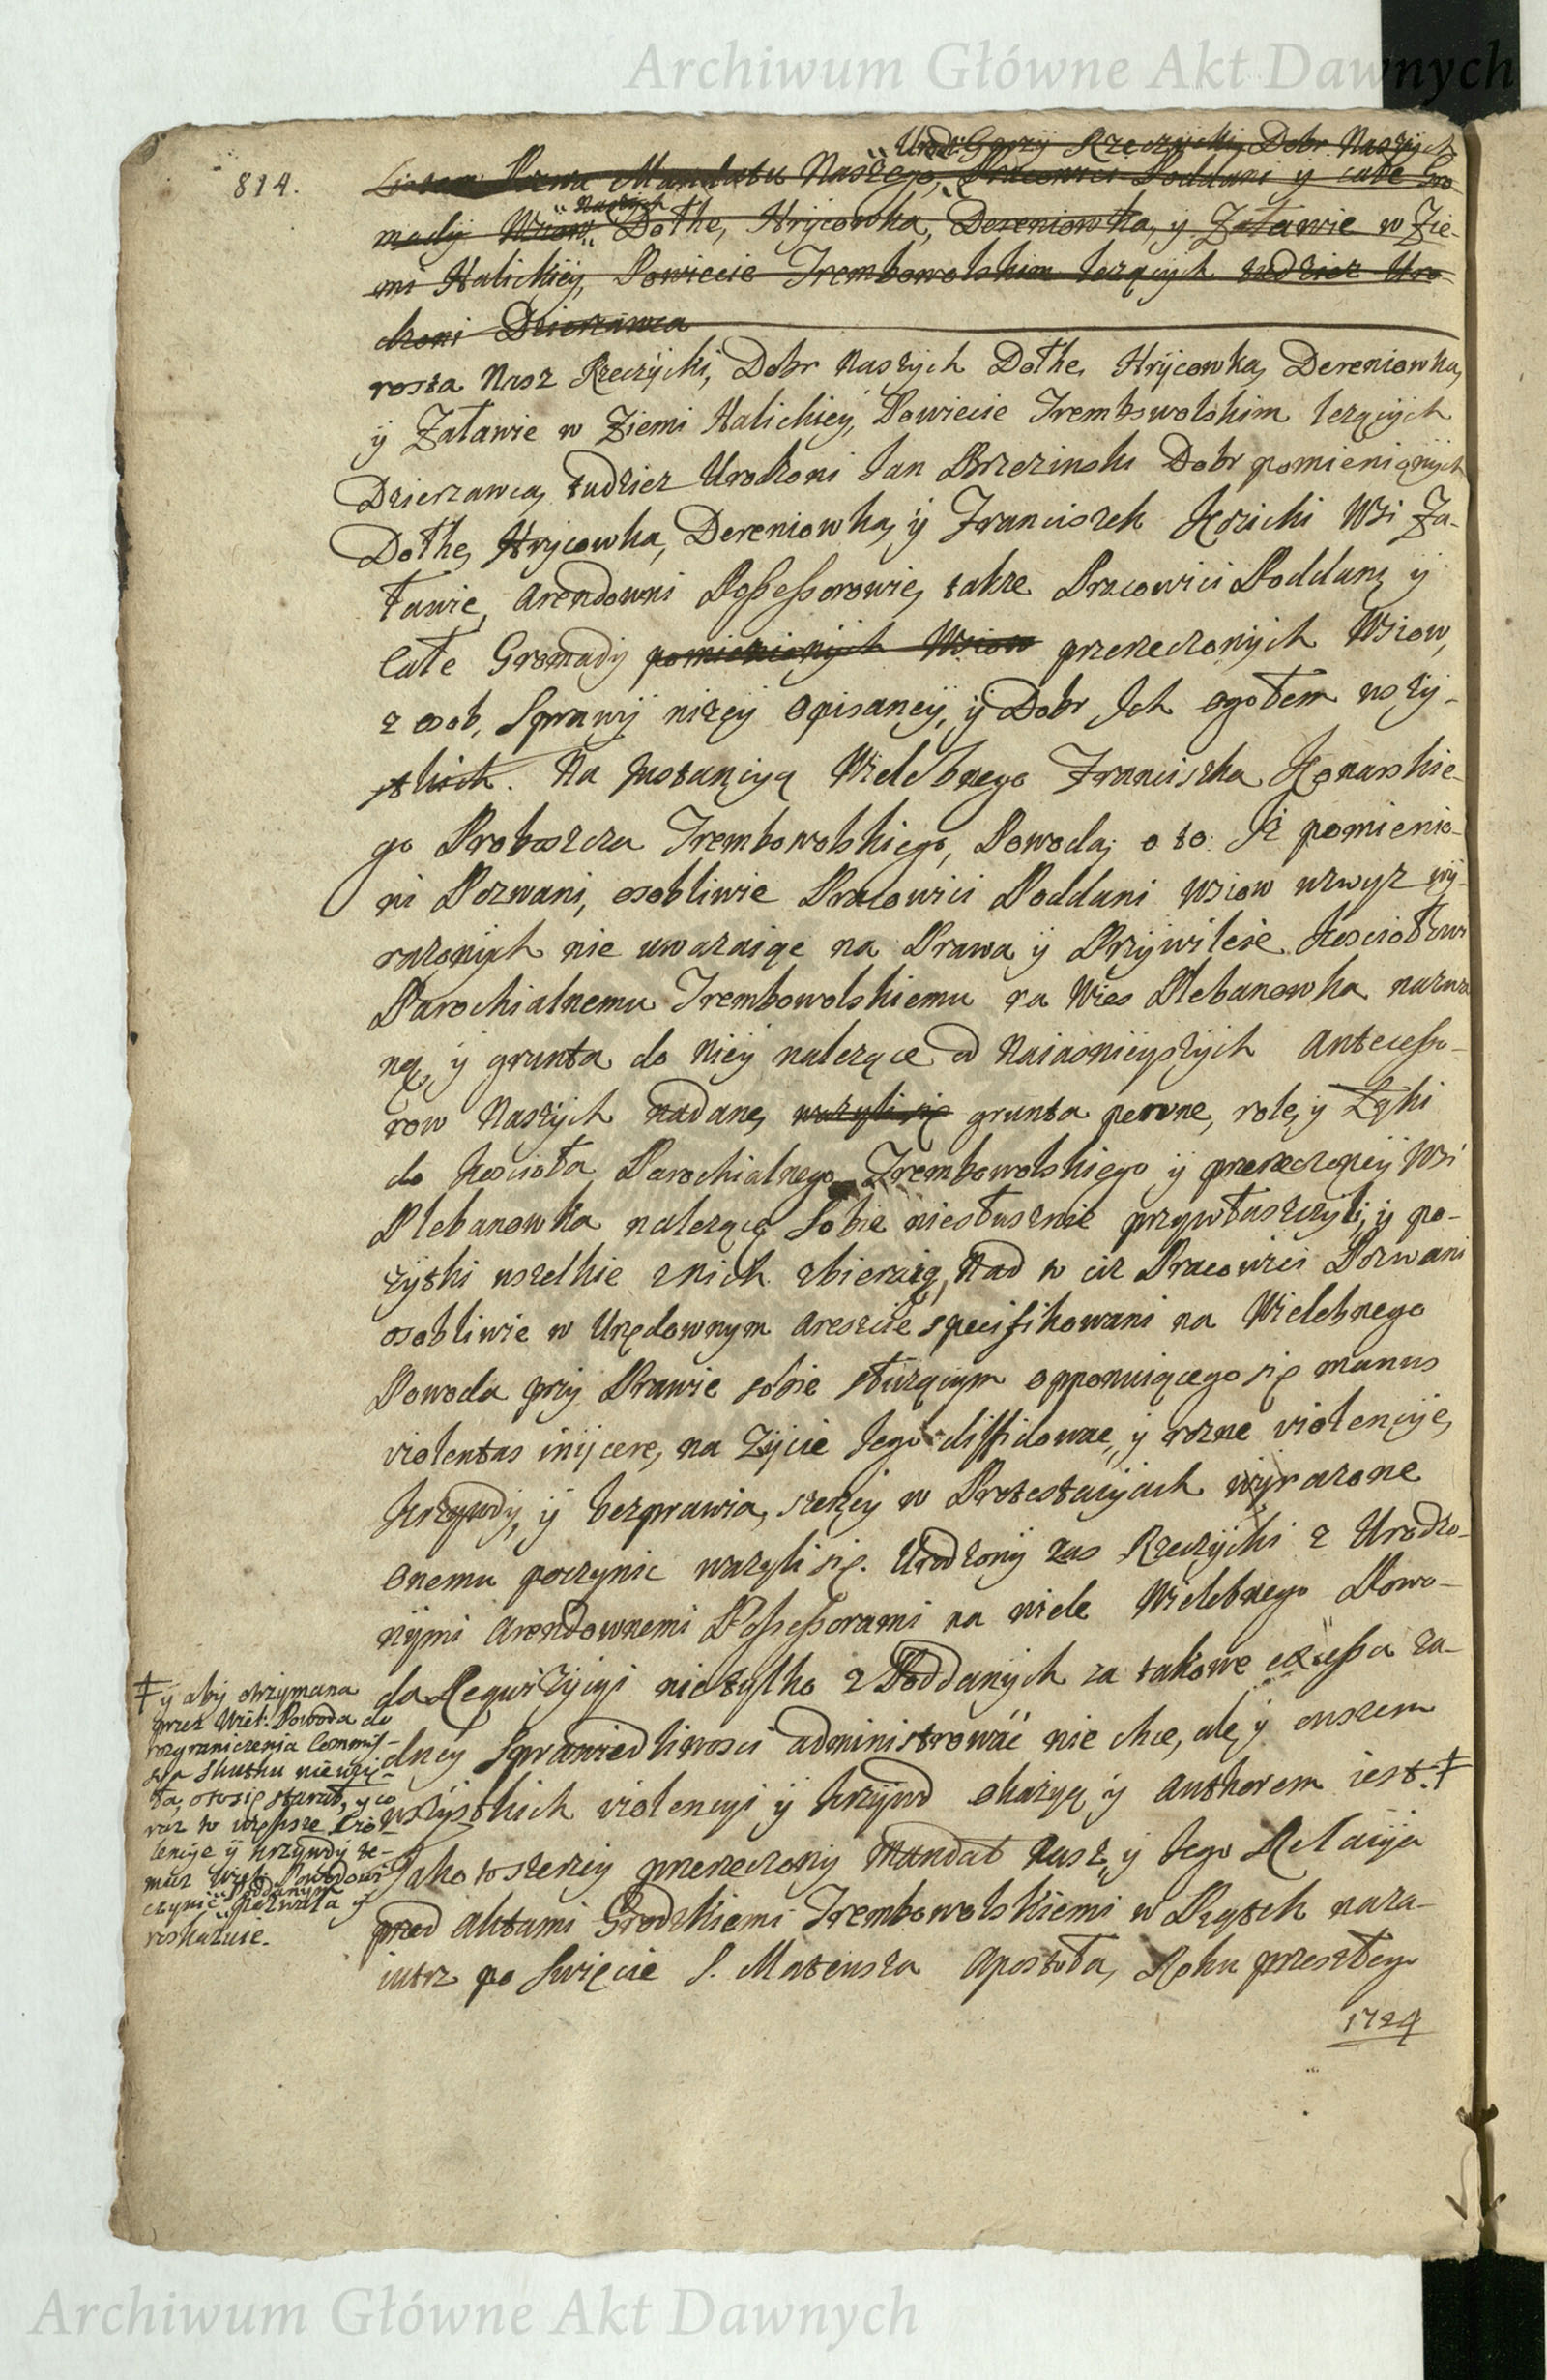 Archiwum Główne Akt Dawnych
814.
Urodz: Gorzy Rzeczycki, Dobr Naszych
Mandatu Naszego, Pracowici Poddani y całe Gro-
mady Wsiow Naszych Dołhe, Hrycowka, Dereniowka, y Załawie w Zie-
mi Halickiey, Powiecie Trembowolskim lezących tudziesz Uro-
dzoni Dzierzawca
rosta Nasz Rzeczycki, Dobr Naszych Dołhe, Hrycowka, Dereniowka,
ÿ Załawie w Ziemi Halickiey, Powiecie Trembowolskim lezących
Dzierzawca, tudziez Urodzoni Jan Brzezinski Dobr pomienionÿch
Dołhe, Hrycowka, Dereniowka, ÿ Franciszek Wsi Za-
ławie, Arendowni Possessorowie, takze Pracowici Poddani ÿ
Całe Gromady pomienionych Wsiow przerzeczonÿch Wsiow,
z osob, Sprawÿ nizey Opisaneÿ, ÿ Dobr Ich ogołem wszÿ-
stkich. Na Instancyą Wielebnego Franciszka Konarskie-
go Proboszcza Trembowolskiego, Powoda, o to: Iz pomienio-
ni Pozwani, osobliwie Pracowici Poddani Wsiow wzwyz wÿ-
razonÿch nie uwazaiąc na Prawa ÿ Przÿwileie Kosciołowi
Parochialnemu Trembowolskiemu na Wies Plebanowka nazwa-
ną, ÿ grunta do nieÿ nalezące od Naiasnieyszÿch Antecesso-
row Naszÿch nadane, wazyli się grunta pewne, role, y Łąki
do Koscioła Parochialnego Trembowolskiego ÿ przerzeczoneÿ Wsi
Plebanowka nalezące Sobie niesłusznie przywłaszczyli, ÿ po-
zÿtki wszelkie z nich zbieraią, Nad to ciz Pracowici Pozwani
osobliwie w Urzędownym Areszcie specifikowani na Wielebnego
Powoda przy Prawie sobie słuzącym opponuiącego się manus
violentas iniicere, na Zÿcie Jego diffidowac, ÿ rozne violencÿe,
Krzywdy, ÿ bezprawia, szerzeÿ w Protestacÿach wÿrazone
onemu poczynic wazyli się. Urodzonÿ zas Rzeczÿcki z Urodzo-
nÿmi Arendownemi Possessorami na wiele Wielebnego Powo-
da Requizÿcÿi nie tylko z Poddanych za takowe excessa za-
dneÿ Sprawiedliwosci administrowáć nie chce, ale, ÿ owszem
wszÿstkich violencyi ÿ Krzÿwd okazÿą ÿ Authorem iest.‡
Jako to szerzeÿ przerzeczonÿ Mandat Nasz, ÿ Jego Relacÿa
przed Aktami Grodzkiemi Trembowolskiemi w Piątek naza-
iutrz po Swięcie S. Mateusza Apostoła, Roku przeszłego
1724
‡ ÿ abÿ otrzymana
przez Wiel: Powoda do
rozgraniczenia Commis-
sya skutku nie wzię-
ła, oto się starał, y co
raz to większe vio-
lencye ÿ krzywdÿ te-
muz Wiel: Powodowi
czynić Poddanym pozwala ÿ
roskazuie.
Archiwum Główne Akt Dawnych